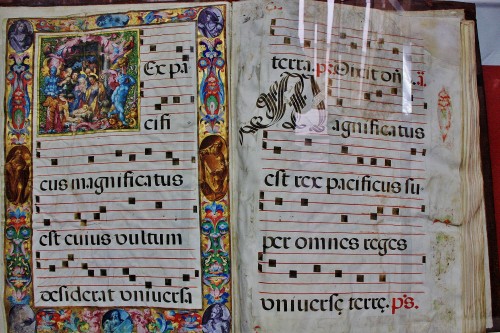 Ex pa
cifi
cus magnificatus
est cuius vultum
desiderat vniversa
terra. ps. Dixit dn̄.
Magnificatus
est rex pacificus su-
per omnes reges
vniversę terrę. ps.